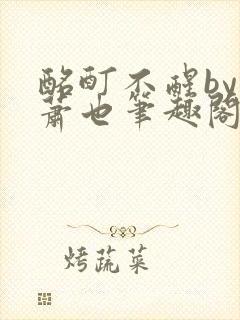 酩酊不醒by
萧也笔趣阁
烤蔬菜